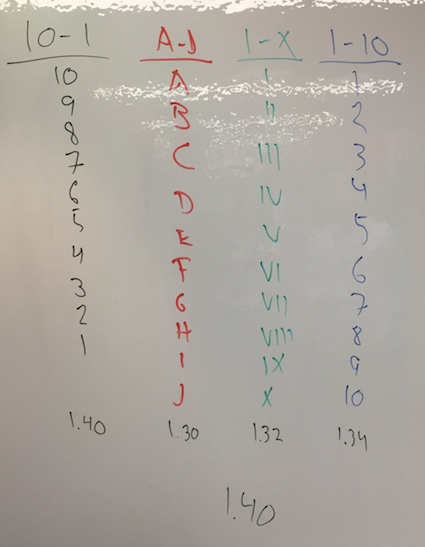 10-1 A-J I-X 1-10
10 A I 1
9 B II 2
8 C III 3
7 D IV 4
6 E V 5
5 F VI 6
4 G VII 7
3 H VIII 8
2 I IX 9
1 J X 10
1.40 1.30 1.32 1.34
1.40